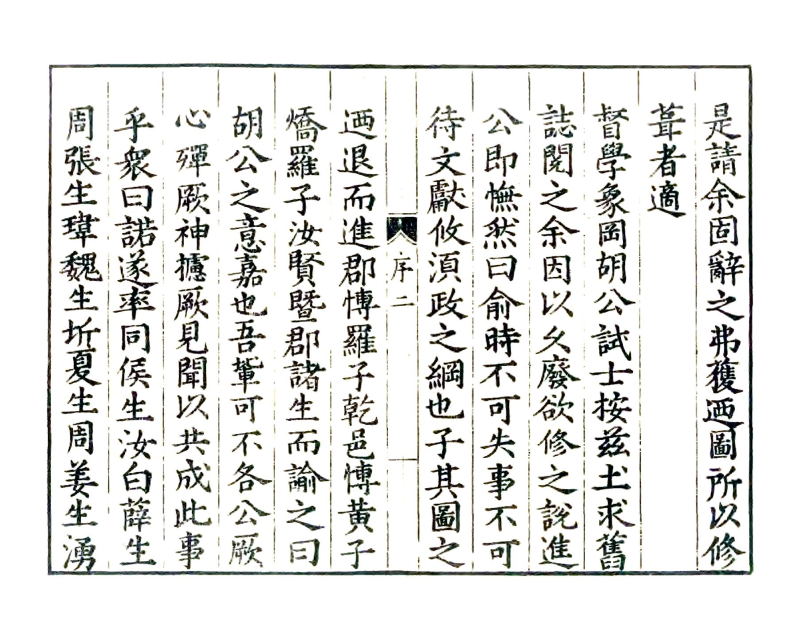 是請余固辭之弗獲迺圖所以修
葺者適
督學象岡胡公試士按兹土求舊
誌閱之余因以久廢欲修之說進
公即憮然曰俞時不可失事不可
待文獻攸湏政之綱也子其圖之
序二
迺退而進郡愽羅子乾邑愽黄子
燆羅子汝賢暨郡諸生而諭之曰
胡公之意嘉也吾軰可不各公厥
心殫厥神攄厥見聞以共成此事
乎衆曰諾遂率同侯生汝白薛生
周張生瑋魏生圻夏生周姜生湧